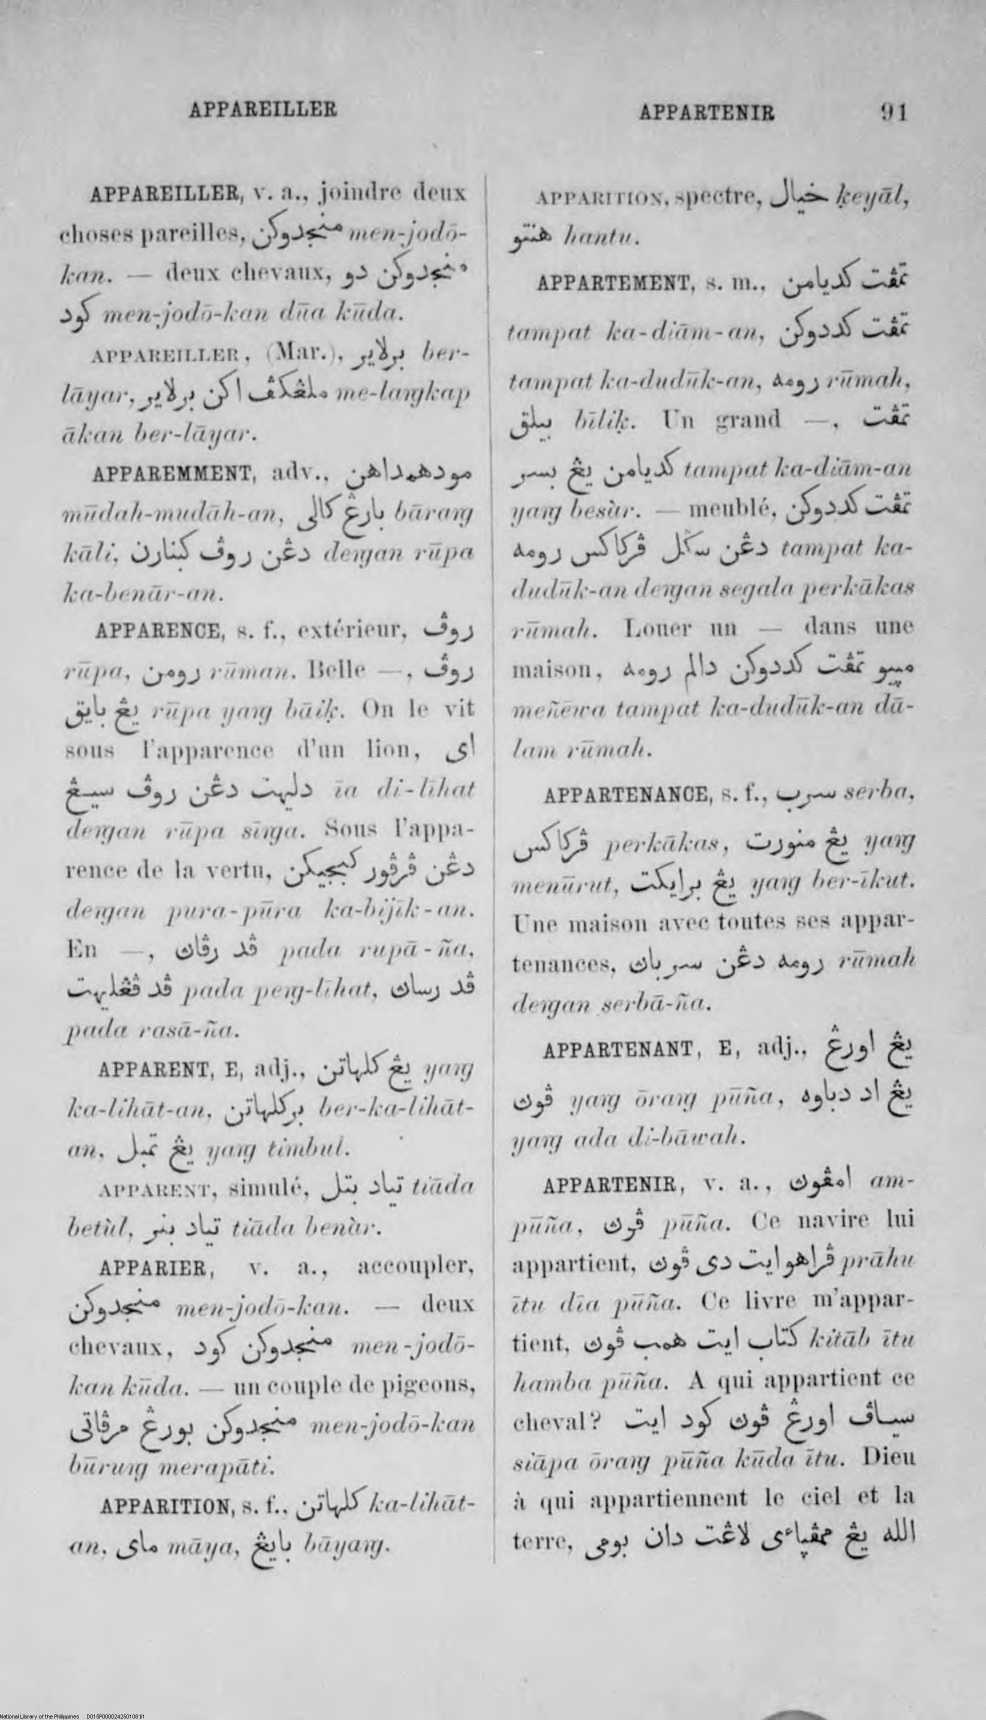 APPAREILLER
APPARTENIR 91
APPAREILLER, v. a., joindre deux
choses pareilles, منجدوكن men-jodō-
kan. — deux chevaux, منجدوكن دو
كود men-jodō-kan dūa kūda.
APPAREILLER, (Mar.), برلاير ber-
lāyar, ملڠكڤ اكن برلاير me-laŋgkap
ākan ber-lāyar.
APPAREMMENT, adv., مودهمداهن
mūdah-mudāh-an, بارڠ كالى bāraŋg
kāli, دڠن روڤ كبنارن deŋgan rūpa
ka-benār-an.
APPARENCE, s. f., extérieur, روڤ
rūpa, رومن rūman. Belle —, روڤ
يڠ بايق rūpa yaŋg bāiḳ. On le vit
sous l'apparence d'un lion, اى
دليهت دڠن روڤ سيڠ īa di-līhat
deŋgan rūpa sīŋga. Sous l'appa-
rence de la vertu, دڠن ڤرڤور كبجيكن
deŋgan pura-pūra ka-bijīk-an.
En —, ڤد رڤاڽ pada rupā-ña,
ڤد ڤڠليهت pada peŋg-līhat, ڤد رساڽ
pada rasā-ña.
APPARENT, E, adj., يڠ كلهاتن yaŋg
ka-lihāt-an, بركلهاتن ber-ka-lihāt-
an, يڠ تمبل yaŋg timbul.
APPARENT, simulé, تياد بتل tiāda
betùl, تياد بنر tiāda benàr.
APPARIER, v. a., accoupler,
منجدوكن men-jodō-kan. — deux
chevaux, منجدوكن كود men-jodō-
kan kūda. — un couple de pigeons,
منجدوكن بورڠ مرڤاتى men-jodō-kan
būruŋg merapāti.
APPARITION, s. f., كلهاتن ka-lihāt-
an, ماى māya, بايڠ bāyaŋg.
APPARITION, spectre, خيال ḳeyāl,
هنتو hantu.
APPARTEMENT, s. m., تمڤت كديامن
tampat ka-diām-an, تمڤت كددوكن
tampat ka-dudūk-an, رومه rūmah,
بيلق bīliḳ. Un grand —, تمڤت
كديامن يڠ بسر tampat ka-diām-an
yaŋg besàr. — meublé, تمڤت كددوكن
دڠن سݢل ڤركاكس رومه tampat ka-
dudūk-an deŋgan segala perkākas
rūmah. Louer un — dans une
maison, ميـيو تمڤت كددوكن دالم رومه
meñēwa tampat ka-dudūk-an dā-
lam rūmah.
APPARTENANCE, s. f., سرب serba,
ڤركاكس perkākas, يڠ منورت yaŋg
menūrut, يڠ برايكت yaŋg ber-īkut.
Une maison avec toutes ses appar-
tenances, رومه دڠن سرباڽ rūmah
deŋgan serbā-ña.
APPARTENANT, E, adj., يڠ اورڠ
ڤوڽ yaŋg ōraŋg pūña, يڠ اد دباوه
yaŋg ada di-bāwah.
APPARTENIR, v. a., امڤوڽ am-
pūña, ڤوڽ pūña. Ce navire lui
appartient, ڤراهو ايت دى ڤوڽ prāhu
ītu dīa pūña. Ce livre m'appar-
tient, كتاب ايت همب ڤوڽ kitāb ītu
hamba pūña. A qui appartient ce
cheval? سياڤ اورڠ ڤوڽ كود ايت
siāpa ōraŋg pūña kūda ītu. Dieu
à qui appartiennent le ciel et la
terre, الله يڠ ممڤياءى لاڠت دان بومى
National Library of the Philippines